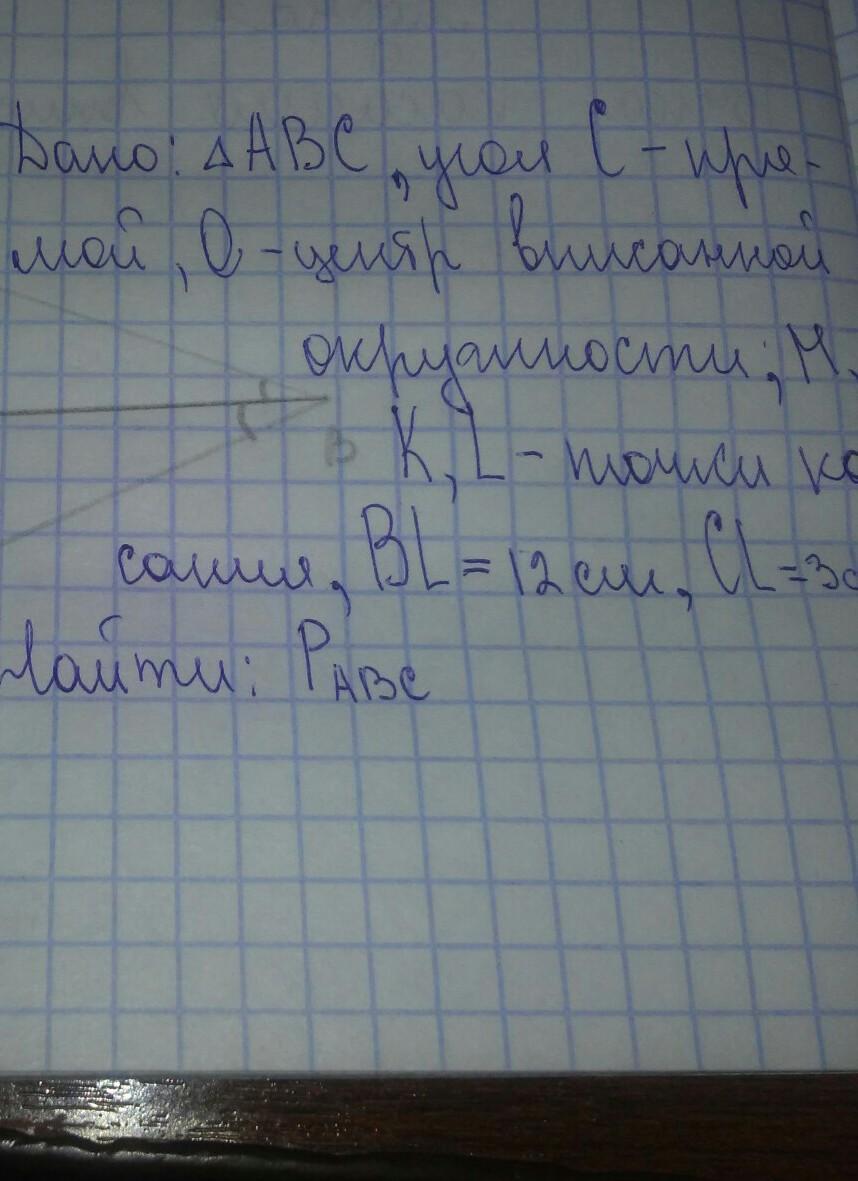 Дано: △ABC, угол C - пря-
мой, O - центр вписанной
окружности; M,
B K, L - точки ка
сания, BL = 12 см, CL = 3с
Найти: PABC